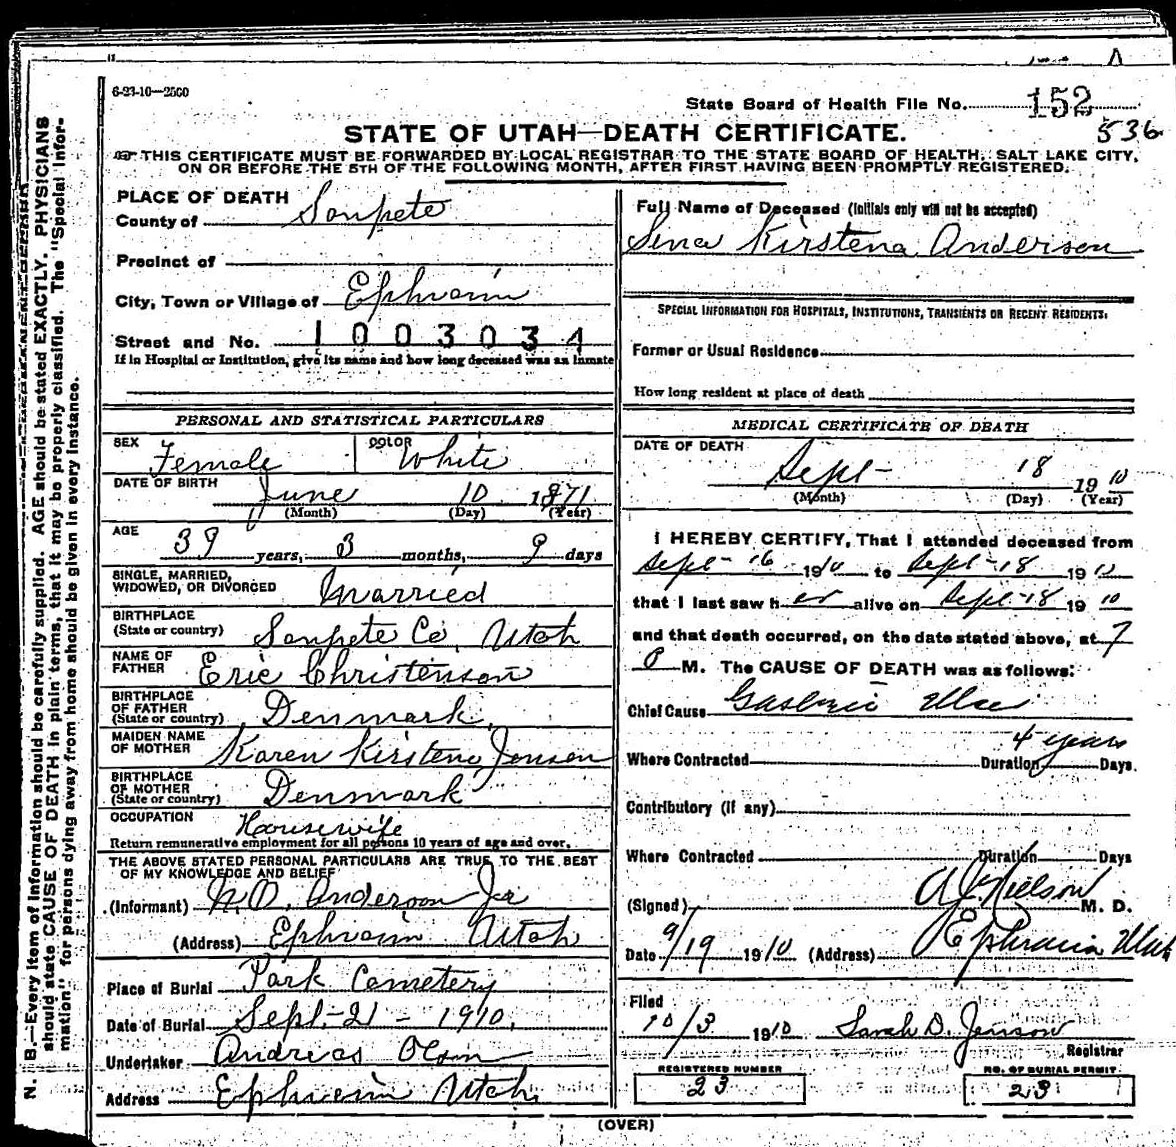 6-23-10—2500
State Board of Health File No. 152
536
STATE OF UTAH—DEATH CERTIFICATE.
THIS CERTIFICATE MUST BE FORWARDED BY LOCAL REGISTRAR TO THE STATE BOARD OF HEALTH, SALT LAKE CITY,
ON OR BEFORE THE 5TH OF THE FOLLOWING MONTH, AFTER FIRST HAVING BEEN PROMPTLY REGISTERED.
PLACE OF DEATH
County of Sanpete
Precinct of
City, Town or Village of Ephraim
Street and No. 1003034
If in Hospital or Institution, give its name and how long deceased was an inmate
PERSONAL AND STATISTICAL PARTICULARS
SEX Female COLOR White
DATE OF BIRTH June 10 1871
(Month) (Day) (Year)
AGE 39 years, 3 months, 9 days
SINGLE, MARRIED,
WIDOWED, OR DIVORCED Married
BIRTHPLACE
(State or country) Sanpete Co, Utah
NAME OF
FATHER Eric Christenson
BIRTHPLACE
OF FATHER
(State or country) Denmark
MAIDEN NAME
OF MOTHER Karen Kirstena Jensen
BIRTHPLACE
OF MOTHER
(State or country) Denmark
OCCUPATION Housewife
Return remunerative employment for all persons 10 years of age and over.
THE ABOVE STATED PERSONAL PARTICULARS ARE TRUE TO THE BEST
OF MY KNOWLEDGE AND BELIEF
(Informant) N.O. Anderson Jr
(Address) Ephraim Utah
Place of Burial Park Cemetery
Date of Burial Sept. 21 - 1910.
Undertaker Andreas Olson
Address Ephraim Utah.
Full Name of Deceased (Initials only will not be accepted)
Sena Kirstena Anderson
SPECIAL INFORMATION FOR HOSPITALS, INSTITUTIONS, TRANSIENTS OR RECENT RESIDENTS.
Former or Usual Residence
How long resident at place of death
MEDICAL CERTIFICATE OF DEATH
DATE OF DEATH
Sept- 18 1910
(Month) (Day) (Year)
I HEREBY CERTIFY, That I attended deceased from
Sept- 16 1910 to Sept-18 1910
that I last saw her alive on Sept-18 1910
and that death occurred, on the date stated above, at 7
P M. The CAUSE OF DEATH was as follows:
Chief Cause Gastric Ulcer
4 years
Where Contracted Duration Days.
Contributory (if any)
Where Contracted Duration Days
(Signed) A.J. Nielson M. D.
Date 9/19 1910 (Address) Ephraim Utah
Filed
10/3 1910 Sarah D. Jenson
Registrar
REGISTERED NUMBER
23
NO. OF BURIAL PERMIT
23
(OVER)
N. B.—Every item of information should be carefully supplied. AGE should be stated EXACTLY. PHYSICIANS
should state CAUSE OF DEATH in plain terms, that it may be properly classified. The "Special Infor-
mation" for persons dying away from home should be given in every instance.